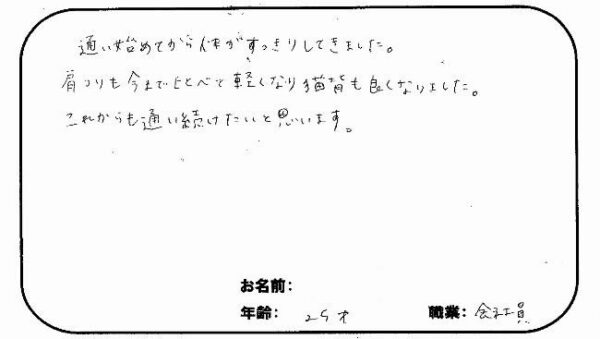 通い始めてから体がすっきりしてきました。
肩コリも今まで比べて軽くなり猫背も良くなりました。
これからも通い続けたいと思います。
お名前:
年齢: 25才
職業: 会社員